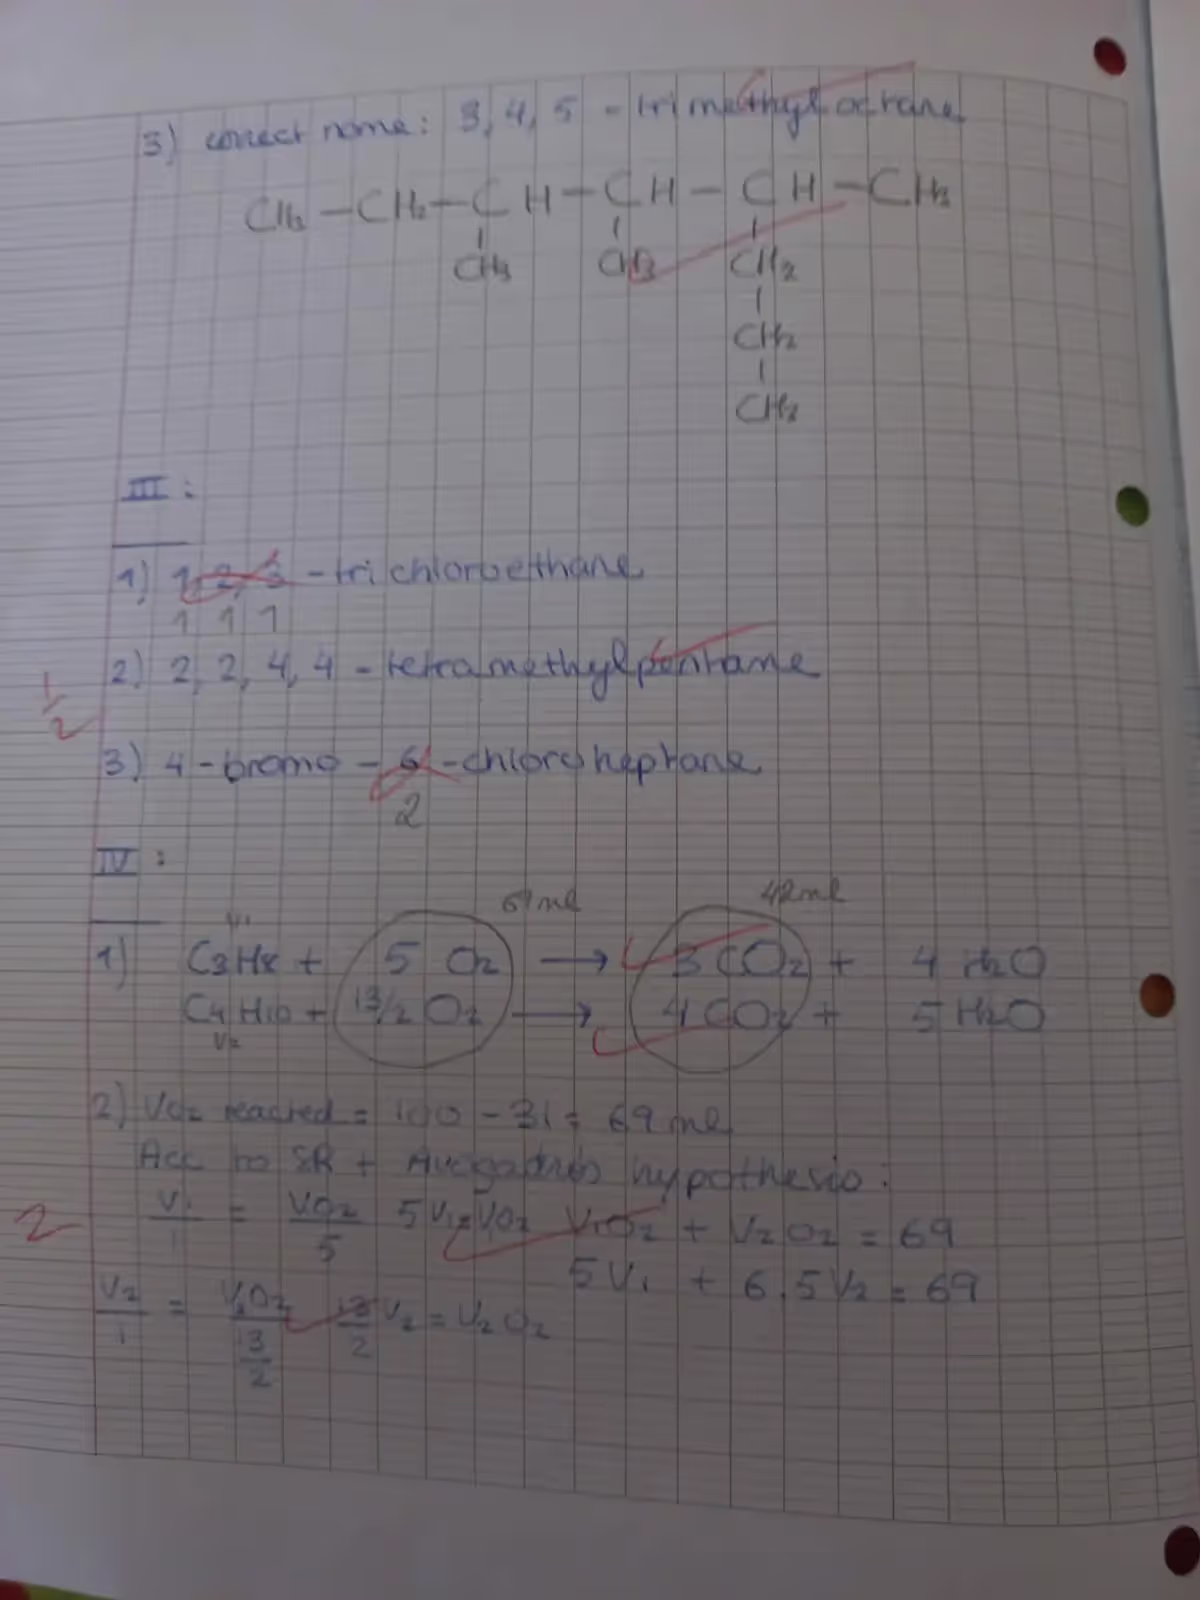 3) correct name: 3, 4, 5 - trimethyl octane
CH3 - CH2 - CH - CH - CH - CH3
CH3 CH3 CH2
CH2
CH2
III :
1) 1, 2, 3 - trichloroethane
1 1 1
2) 2, 2, 4, 4 - tetramethylpentane
1/2
3) 4 - bromo - 6 - chloroheptane
2
IV :
69 ml 42 ml
V1
1) C3H8 + 5 O2 → 3 CO2 + 4 H2O
C4H10 + 13/2 O2 → 4 CO2 + 5 H2O
V2
2) VO2 reacted = 100 - 31 = 69 ml
Acc to SR + Avogadro's hypothesis :
2
V1/1 = VO2/5 5V1 = VO2 V1O2 + V2O2 = 69
5V1 + 6.5V2 = 69
V2/1 = V2O2/(13/2) 13/2 V2 = V2O2